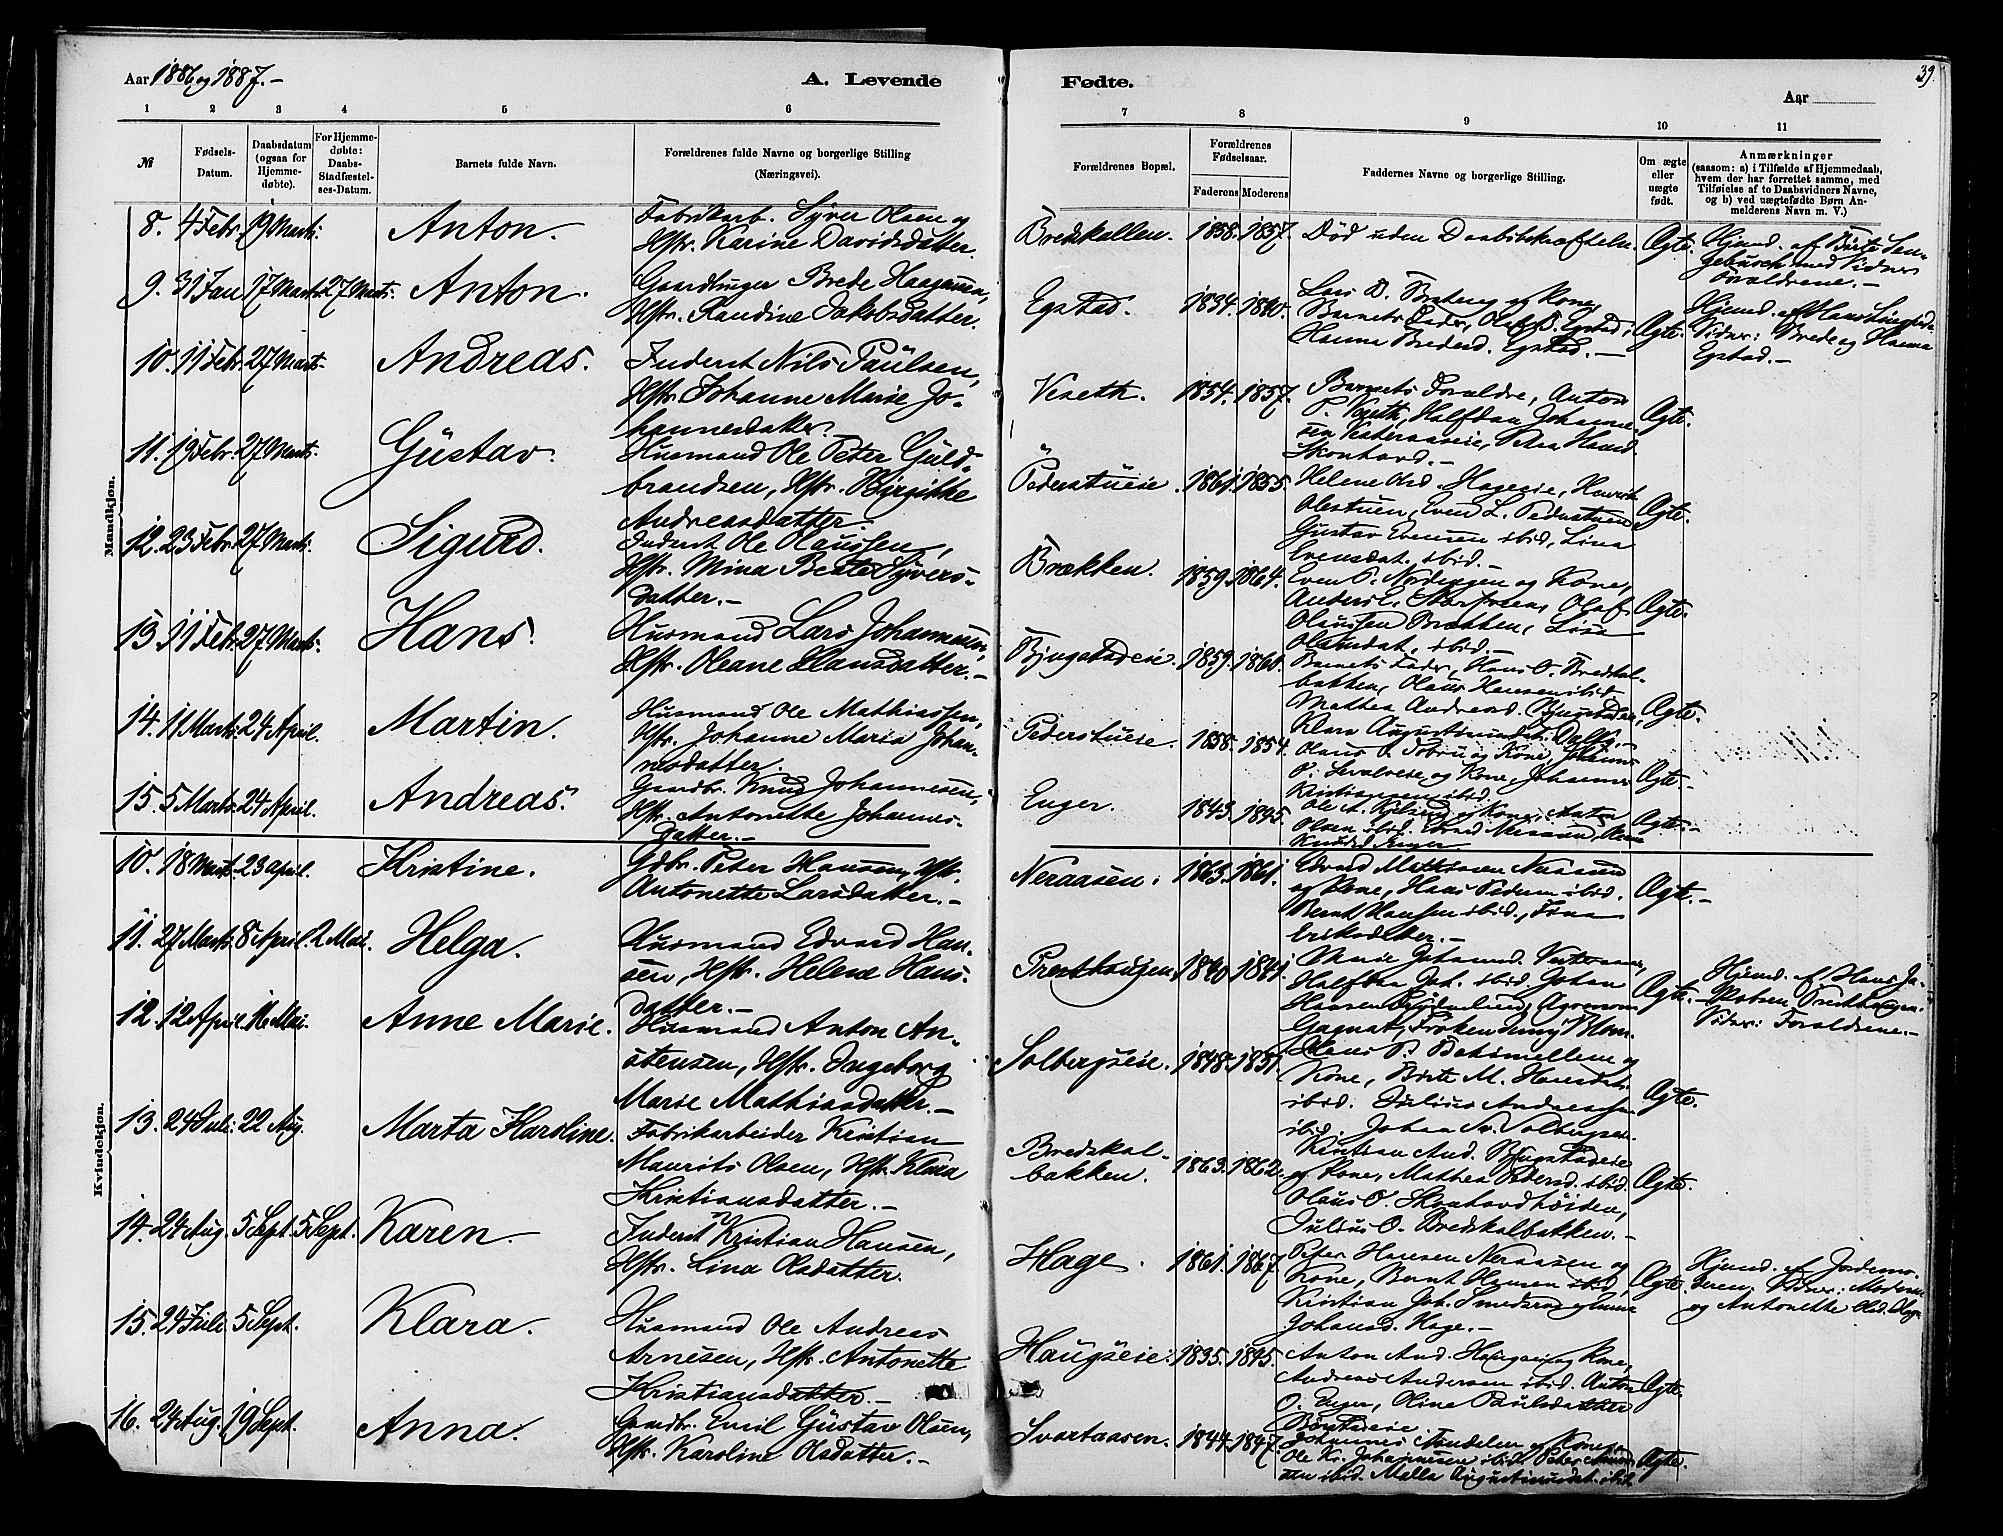 Aar 1886 og 1887.-
A. Levende
Fødte.
39.
Aar
1 2 3 4 5 6 7 8 9 10 11
№
Fødsels-Datum.
Daabsdatum (ogsaa for Hjemmedøbte).
For Hjemmedøbte: Daabs-Stadfæstelses-Datum.
Barnets fulde Navn.
Forældrenes fulde Navne og borgerlige Stilling (Næringsvei).
Forældrenes Bopæl.
Forældrenes Fødselsaar.
Faderens Moderens
Faddernes Navne og borgerlige Stilling.
Om ægte eller uægte født.
Anmærkninger
(saasom: a) i Tilfælde af Hjemmedaab, hvem der har forrettet samme, med Tilføielse af to Daabsvidners Navne, og b) ved uægtefødte Børn Anmelderens Navn m. V.)
Mandkjøn.
8. 4 Febr. 19 Marts. Anton. Fabrikarb. Syver Olsen og
Hstr. Karine Davidsdatter.
Bredskallen. 1858. 1857. Død uden Daabsbekræftelse. Ægte. Hjemd. af Birte
med Vidner
Forældrene.-
9. 31 Jan 17 Marts 27 Marts. Anton. Gaardbruger Brede Haagensen,
Hstr. Randine Jakobsdatter.
Egstad. 1834. 1840. Lars D. og Kone,
Barnets Fader, Olaf B. Egstad,
Hanna Bredesd. Egstad.-
Ægte. Hjemd. af Hans
Vidner: Brede og Hanna
Egstad.-
10. 11 Febr. 27 Marts. Andreas. Inderst Nils Paulsen,
Hstr. Johanne Marie Jo-
hannesdatter.
Veseth. 1854. 1857. Barnets Forældre, Anton
P. Veseth, Halfdan Johanne-
sen
Skonhovd.-
Ægte.
11. 19 Febr. 27 Marts. Gustav. Husmand Ole Peter Guld-
brandsen, Hstr. Birgitte
Andreasdatter.
Pederstueie. 1861. 1855. Helene Hageeie,
Olestuen, Even L. Pederstuen
Gustav Evensen ibid, Lina
Evensdat. ibid.-
Ægte.
12. 23 Febr. 27 Marts. Sigurd. Inderst Ole Olaussen,
Hstr. Mina Beate Syvers-
datter.-
Brækken. 1859. 1864. Even P. Nordengen og Kone,
Olaf
Olaussen Brækken, Lisa
Olausdat. ibid.-
Ægte.
13. 11 Febr. 27 Marts. Hans. Husmand Lars Johannesen,
Hstr. Oleane Hansdatter.-
Bjugstadeie. 1859. 1860. Barnets Fader, Hans O. Bredskal-
bakken, Olaus Hansen ibid
Mathea Andreasd. Bjugstadeie,
Klara Augustinusdat.
Ægte.
14. 11 Marts. 24 April. Martin. Husmand Ole Mathiassen,
Hstr. Johanne Maria Johan-
nesdatter.
Pederstueie. 1858. 1854. Olaus O. og Kone, Johannes
O. og Kone, Johannes
Kristiansen ibid.
Ægte.
15. 5 Marts. 24 April. Andreas. Gaardbr. Knud Johannesen,
Hstr. Antonette Johannes-
datter.-
Enger. 1843. 1845. Ole A. og Kone, Anton
Olsen ibid. Edvard
Knudsd. Enger
Ægte.-
Kvindekjøn.
10. 18 Marts. 23 April. Kristine. Gdbr. Peter Hansen, Hstr.
Antonette Larsdatter.-
Neraasen. 1863. 1861. Edvard Mathisen Neraasen
og Kone, Hans Pedersen ibid.
Bernt Hansen ibid.,
Eriksdatter.-
Ægte.-
11. 27 Marts. 8 April. 2 Mai. Helga. Husmand Edvard Han-
sen, Hstr. Helene Hans-
datter.-
Presthaugen. 1840. 1841. Johansd.
Halfdan Joh. ibid. Johan
Hansen Agronom
Gagnat, Frøken Jenny Blom.
Ægte.- Hjemd. af Hans Ja-
kobsen Presthaugen.
Vidner: Forældrene.-
12. 12 April. 16 Mai. Anne Marie. Husmand Anton An-
stensen, Hstr. Ingeborg
Marie Mathiasdatter.-
Solbergseie. 1848. 1851. Hans P. og
Kone, Birte M. Hansdat.
ibid. Julius Andreassen
ibid. Johan Solbergseie.
Ægte.
13. 24 Juli. 22 Aug. Marta Karoline. Fabrikarbeider Kristian
Maurits Olsen, Hstr. Klara
Kristiansdatter.-
Bredskal-
bakken. 1863. 1862. Kristian And. Bjugstadeie
og Kone, Mathea Pedersd. ibid.
Olaus O. Skonhovdhøiden,
Julius O. Bredskalbakken.-
Ægte.
14. 24 Aug. 5 Sept. 5 Sept. Karen. Inderst Kristian Hansen,
Hstr. Lina Olsdatter.
Hage. 1861. 1867. Peter Hansen Neraasen og
Kone, Bernt Hansen ibid,
Kristian Joh.
Johansd. Hage.-
Ægte. Hjemd. af Jordemo-
deren, Vidner: Moderen
og Antonette Olsd. Hage
15. 24 Juli. 5 Sept. Klara. Husmand Ole Andreas
Arnesen, Hstr. Antonette
Kristiansdatter.-
Haugseie. 1835. 1845. Anton And. Haugseie og Kone,
Andreas Andersen ibid. Anton
O. Enger, Oline Paulsdatter
Ægte.
16. 24 Aug. 19 Sept. Anna. Gaardbr. Emil Gustav Olsen,
Hstr. Karoline Olsdatter.-
Svartaasen. 1844. 1847. Johannes og Kone,
Ole Kr. Johannesen ibid. Peter
ibid. Mella Augustinusdat. ibid.
Ægte.